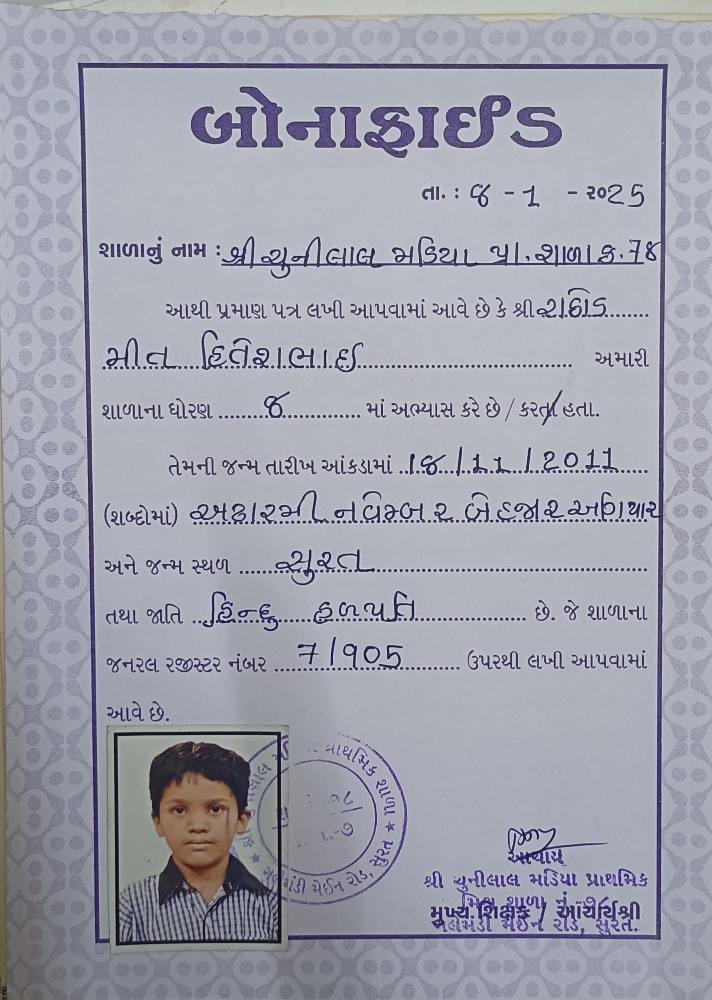 બોનાફાઈડ
તા. : ૪ - 1 - ૨૦25
શાળાનું નામ : શ્રી ચુનીલાલ મડિયા પ્રા. શાળા ક્ર. 78
આથી પ્રમાણ પત્ર લખી આપવામાં આવે છે કે શ્રી રાઠોડ
મીત હિતેશભાઈ અમારી
શાળાના ધોરણ ૪ માં અભ્યાસ કરે છે / કરતા હતા.
તેમની જન્મ તારીખ આંકડામાં 18 / 11 / 2011
(શબ્દોમાં) અઢારમી નવેમ્બર બે હજાર અગિયાર
અને જન્મ સ્થળ સુરત
તથા જાતિ હિન્દુ હળપતિ છે. જે શાળાના
જનરલ રજીસ્ટર નંબર 7/905 ઉપરથી લખી આપવામાં
આવે છે.
પ્રાથમિક શાળા ★
મેઈન રોડ, સુરત
આચાર્ય
શ્રી ચુનીલાલ મડિયા પ્રાથમિક
મુખ્ય શિક્ષક / આચાર્યશ્રી
મેઈન રોડ, સુરત.